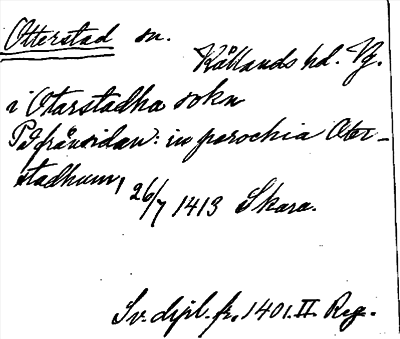 Otterstad sn.
Kållands hd. Vg.
i Otarstadha sokn
På frånsidan: in parochia Oter-
stadhum,
26/7 1413 Skara.
Sv. dipl. fr. 1401. II. Reg.